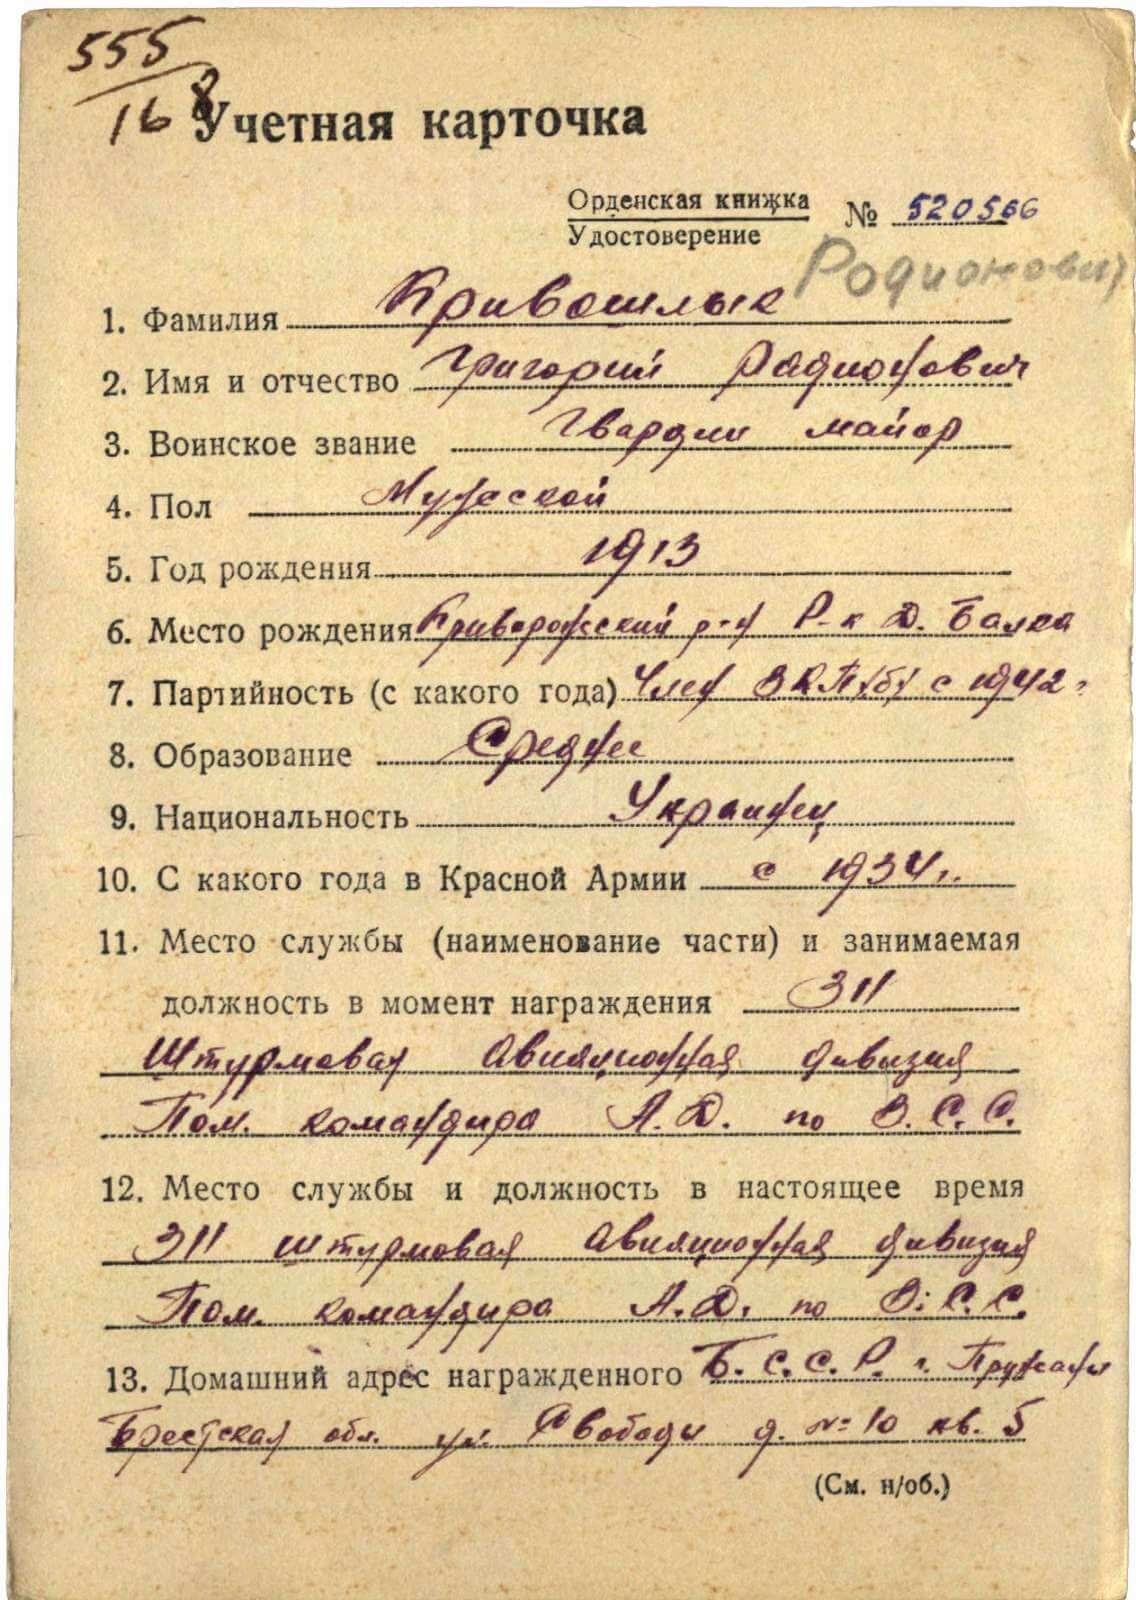 555
16 8
Учетная карточка
Орденская книжка
Удостоверение
№ 520566
Родионович
1. Фамилия Кривошлык
2. Имя и отчество Григорий Радионович
3. Воинское звание Гвардии майор
4. Пол Мужской
5. Год рождения 1913
6. Место рождения Криворожский р-н Р-к Д. Балка
7. Партийность (с какого года) Член ВКП(б) с 1942г
8. Образование Среднее
9. Национальность Украинец
10. С какого года в Красной Армии с 1934г.
11. Место службы (наименование части) и занимаемая
должность в момент награждения 311
Штурмовая Авиационная дивизия
Пом. командира А.Д. по В.С.С.
12. Место службы и должность в настоящее время
311 штурмовая Авиационная дивизия
Пом. командира А.Д. по В.С.С.
13. Домашний адрес награжденного Б.С.С.Р. г. Пружаны
Брестская обл. ул. Свободы д. № 10 кв. 5
(См. н/об.)